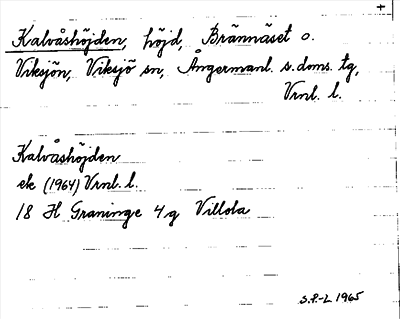 +
Kalvåshöjden, höjd, Brännäset o.
Viksjön, Viksjö sn, Ångermanl. s. doms. tg,
Vrnl. l.
Kalvåshöjden
ek (1964) Vrnl. l.
18 H Graninge 4g Villola
S.P.-L 1965